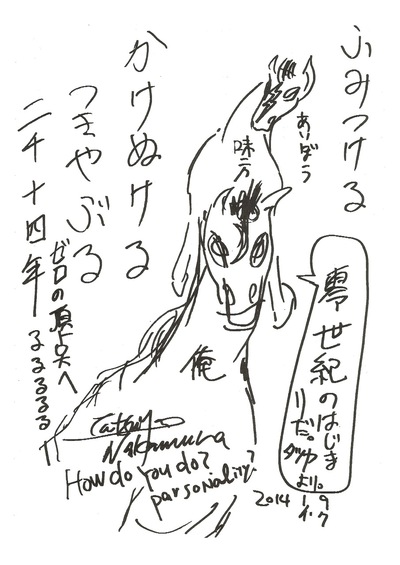 ふみつける
あいぼう
味方
かけぬける
つきやぶる
二千十四年
ゼロの頂点へ
るるるるる
俺
零世紀のはじま
りだ。タツヤより。
Tatsuya
Nakamura
How do you do?
parsonality?
2014